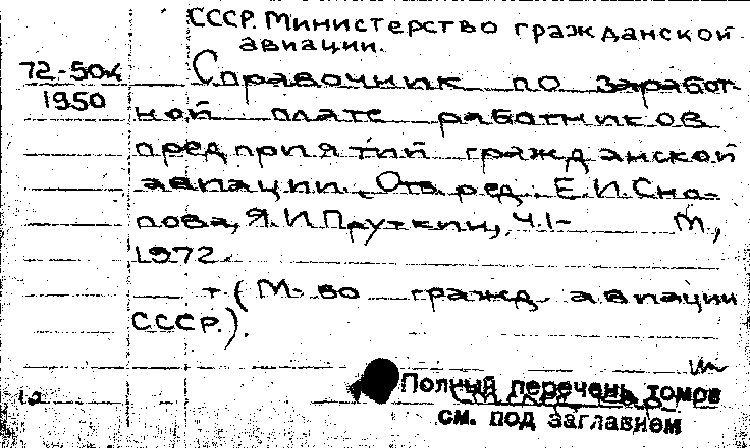 СССР. Министерство гражданской
авиации.
72-50к
1950
Справочник по заработ-
ной плате работников
предприятий гражданской
авиации. Отв. ред.: Е.И.Сно-
пова, Я.И.Пруткин, Ч.1- М.,
1972.
т. (М-во гражд. авиации
СССР.).
Полный перечень томов
см. под заглавием